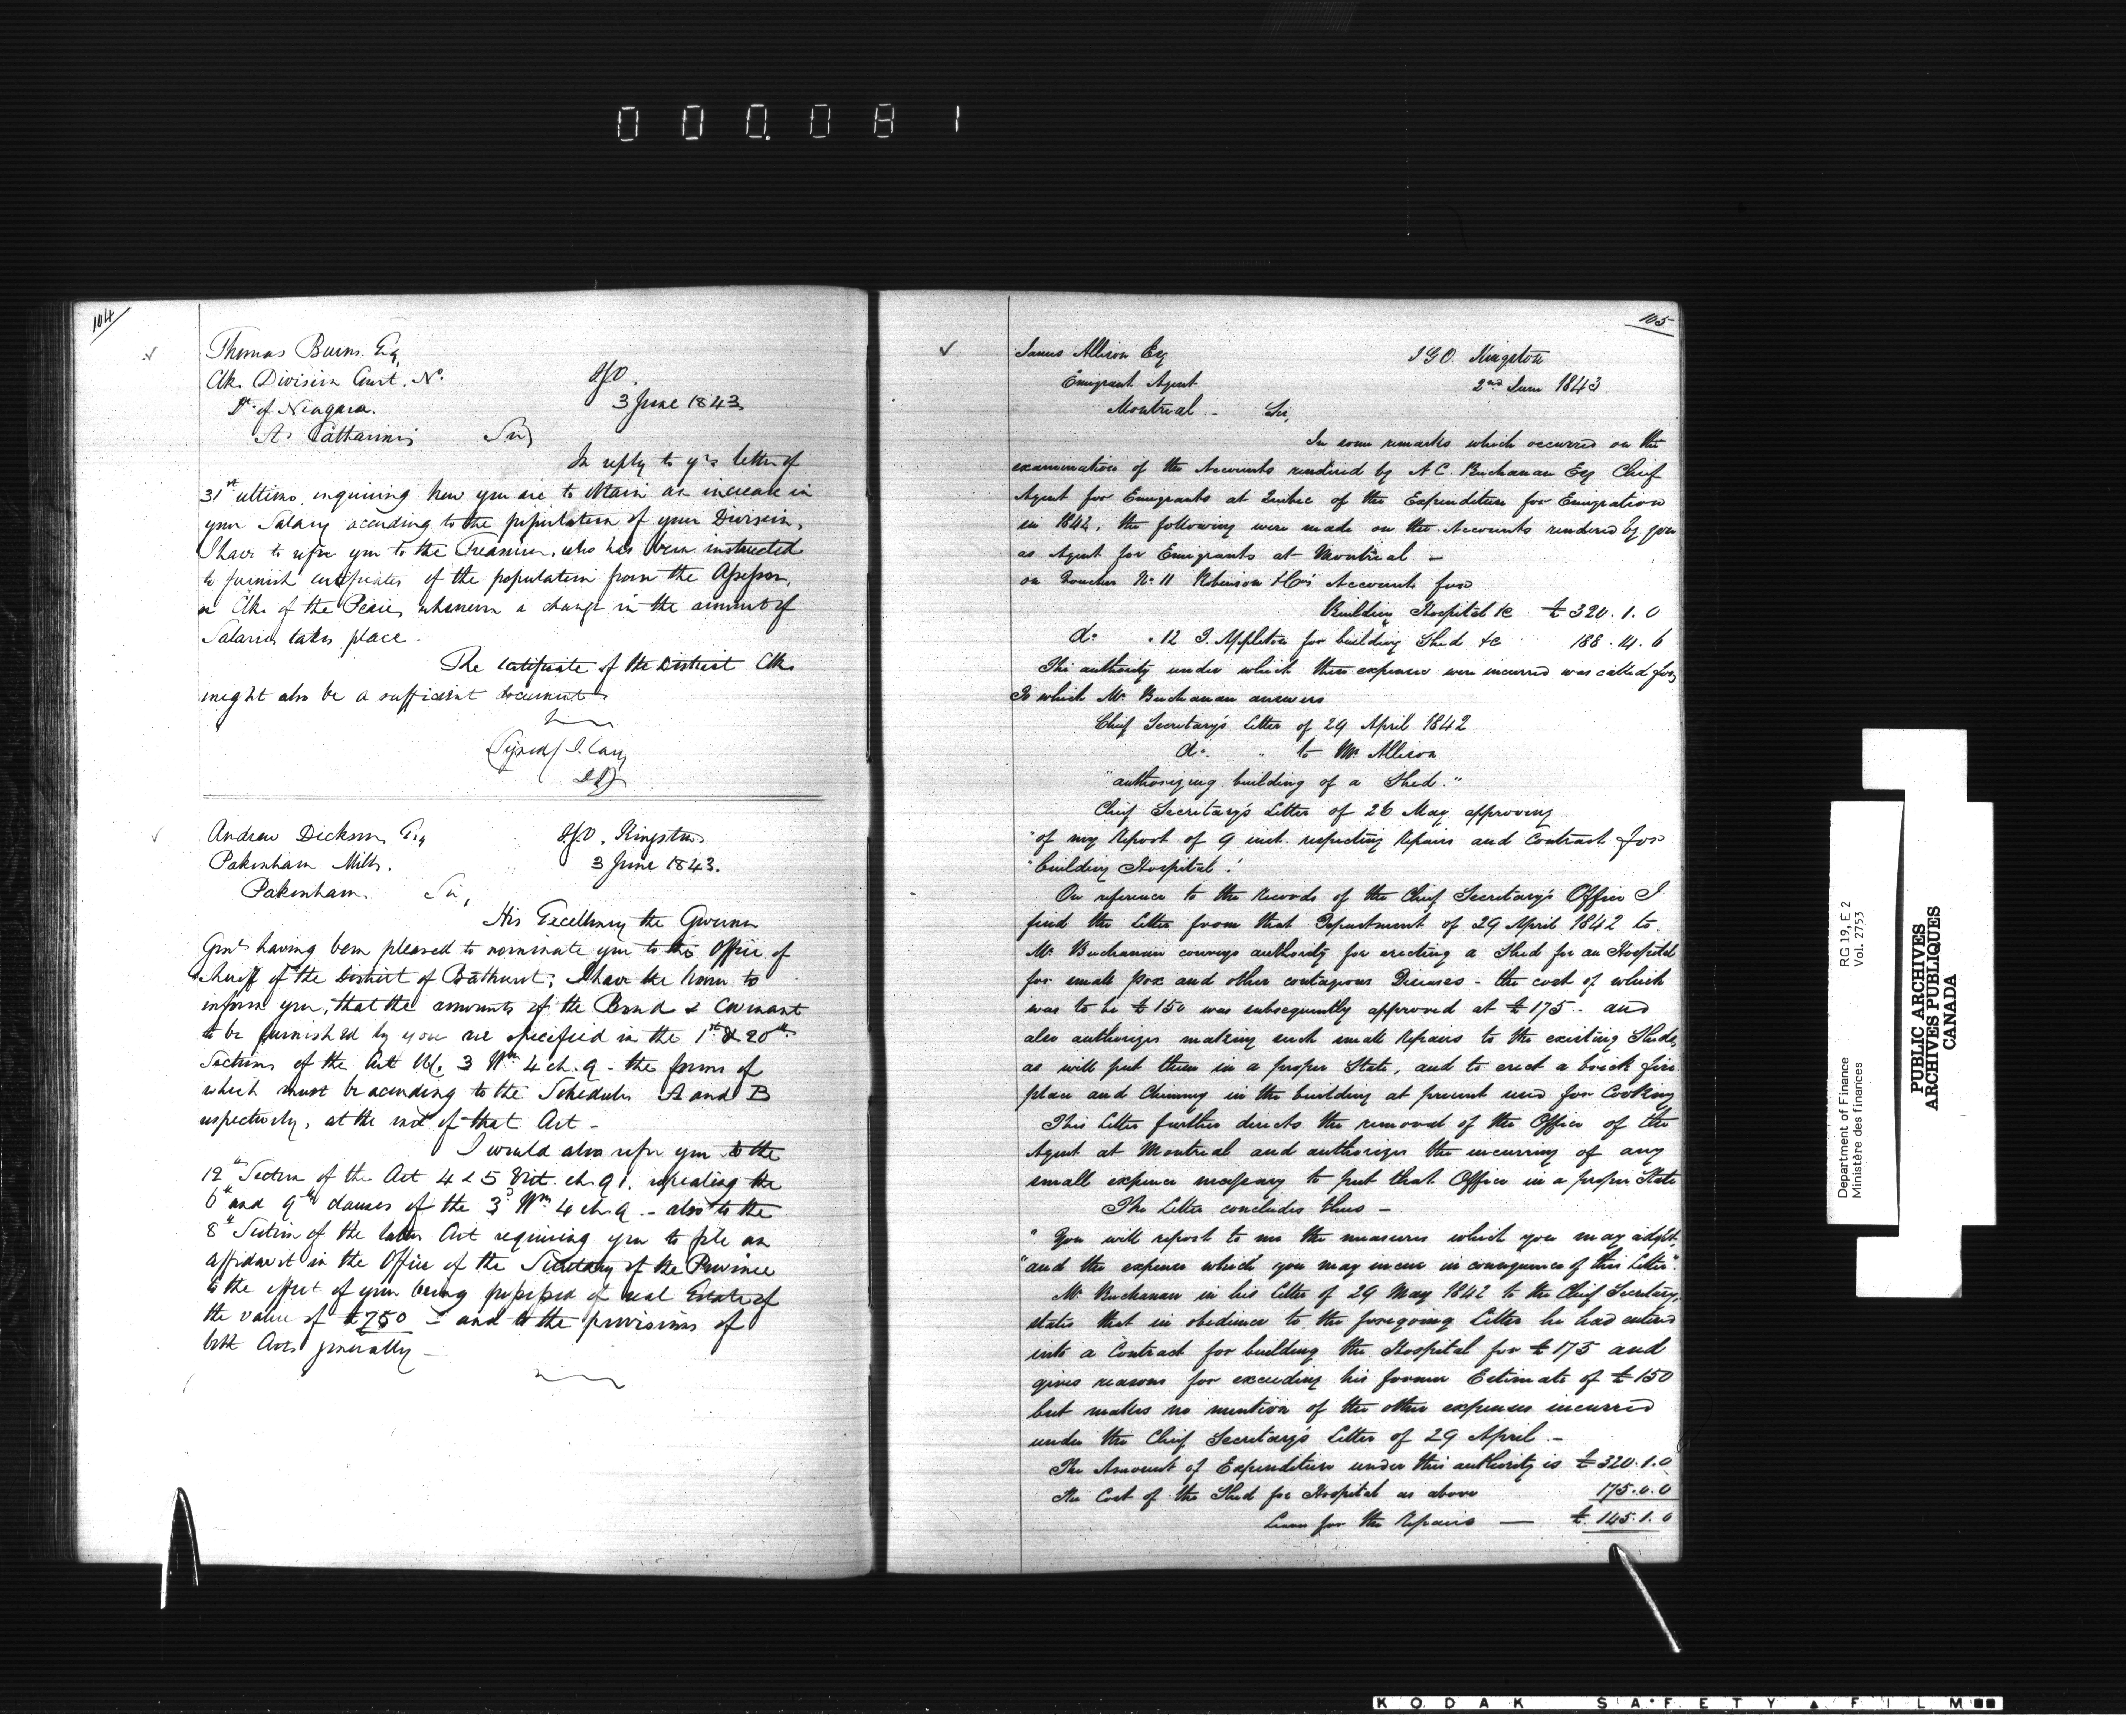 000.081
104
Thomas Burns Esq
Clk. Division Court. No.
Dt. of Niagara.
St. Catharines
I.G.O.
3 June 1843
Sir,
In reply to yrs letter of
31st ultimo, inquiring how you are to obtain an increase in
your Salary according to the population of your Division,
I have to refer you to the Treasurer, who has been instructed
to furnish certificates of the population from the Assessor,
or Clk. of the Peace, whenever a change in the amount of
Salaries takes place.
The certificate of the District Clk.
might also be a sufficient document
(Signed) J. Cary
D.I.G.
Andrew Dickson Esq
Pakenham Mills.
Pakenham
I.G.O. Kingston
3 June 1843.
Sir,
His Excellency the Governor
Genl. having been pleased to nominate you to the Office of
Sheriff of the District of Bathurst; I have the honor to
inform you, that the amounts of the Bond & Covenant
to be furnished by you are specified in the 1st & 20th
Sections of the Act 3 Wm 4 ch. 9 - the forms of
which must be according to the Schedules A and B
respectively, at the end of that Act -
I would also refer you to the
12th Section of the Act 4 & 5 Vict. ch. 91. repealing the
6th and 9th clauses of the 3d Wm 4 ch. 9 - also to the
8th Section of the latter Act requiring you to file an
affidavit in the Office of the Secretary of the Province
to the effect of your being possessed of real Estate of
the value of £750 - and to the provisions of
both Acts generally -
105
James Allison Esq
Emigrant Agent
Montreal -
I G O. Kingston
2nd June 1843
Sir,
In some remarks which occurred on the
examination of the Accounts rendered by A C. Buchanan Esq Chief
Agent for Emigrants at Quebec of the Expenditure for Emigration
in 1842, the following were made on the Accounts rendered by you
as Agent for Emigrants at Montreal -
on Voucher No. 11 Robinson & Co's Accounts for
Building Hospital &c £320.1.0
do. " 12 J. Appleton for building Shed &c 188.14.6
The authority under which these expenses were incurred was called for,
To which Mr. Buchanan answers
Chief Secretary's Letter of 29 April 1842
do. " to Mr. Allison
"authorizing building of a Shed."
Chief Secretary's Letter of 26 May approving
"of my Report of 9 inst. respecting Repairs and Contract for
"building Hospital."
On reference to the Records of the Chief Secretary's Office I
find the Letter from that Department of 29 April 1842 to
Mr. Buchanan conveys authority for erecting a Shed for an Hospital
for small pox and other contagious Diseases - the cost of which
was to be £150 was subsequently approved at £175 - and
also authorizes making such small Repairs to the existing Sheds,
as will put them in a proper State, and to erect a brick fire
place and Chimney in the building at present used for Cooking
This Letter further directs the removal of the Office of the
Agent at Montreal and authorizes the incurring of any
small expence necessary to put that Office in a proper State
The Letter concludes thus -
" You will report to me the measures which you may adopt,
"and the expense which you may incur in consequence of this Letter".
Mr. Buchanan in his Letter of 29 May 1842 to the Chief Secretary,
states that in obedience to the foregoing Letter he had entered
into a Contract for building the Hospital for £175 and
gives reasons for exceeding his former Estimate of £150
but makes no mention of the other expenses incurred
under the Chief Secretary's Letter of 29 April -
The Amount of Expenditure under this authority is £320.1.0
The Cost of the Shed for Hospital as above 175.0.0
Leaves for the Repairs — £145.1.0
Department of Finance RG 19, E 2
Ministère des finances Vol. 2753
PUBLIC ARCHIVES
ARCHIVES PUBLIQUES
CANADA
KODAK SAFETY FILM